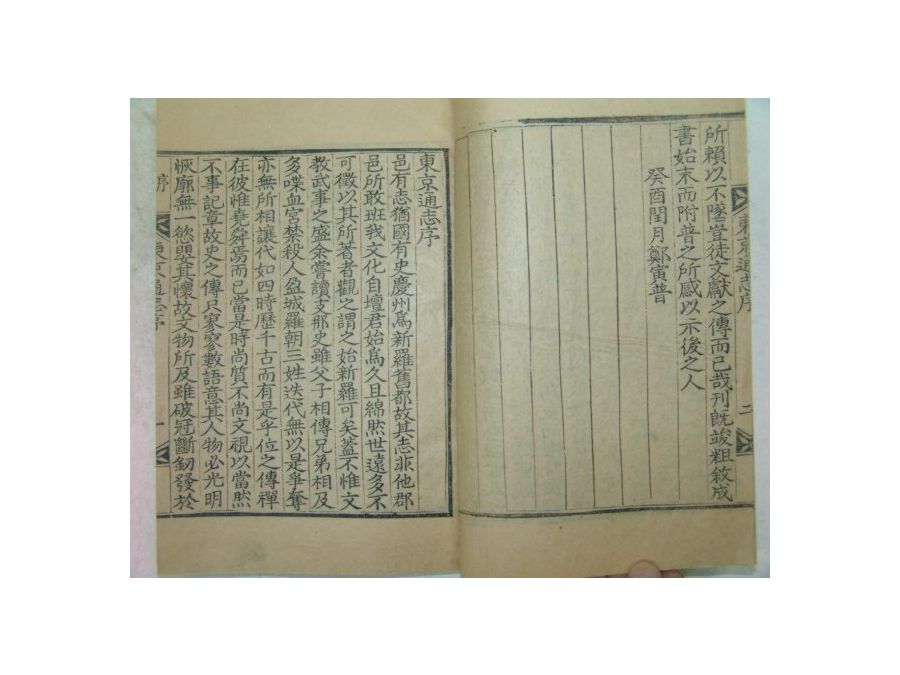 所賴以不墜豈徒文獻之傳而已哉刊旣竣粗敘成
書始末而附普之所感以示後之人
癸酉閏月鄭寅普
東京通志序
二
東京通志序
邑有志猶國有史慶州爲新羅舊都故其志非他郡
邑所敢班我文化自壇君始爲久且綿然世遠多不
可徵以其所著者觀之謂之始新羅可矣蓋不惟文
敎武事之盛余嘗讀支那史雖父子相傳兄弟相及
多喋血宮禁殺人盈城羅朝三姓迭代無以是爭奪
亦無所相讓代如四時歷千古而有是乎位之傳禪
在彼惟堯舜焉而已當是時尚質不尚文視以當然
不事記章故史之傳只寥寥數語意其人物必光明
恢廓無一慾嬰其懷故文物所及雖破冠斷釰發於
序
東京通志序
一